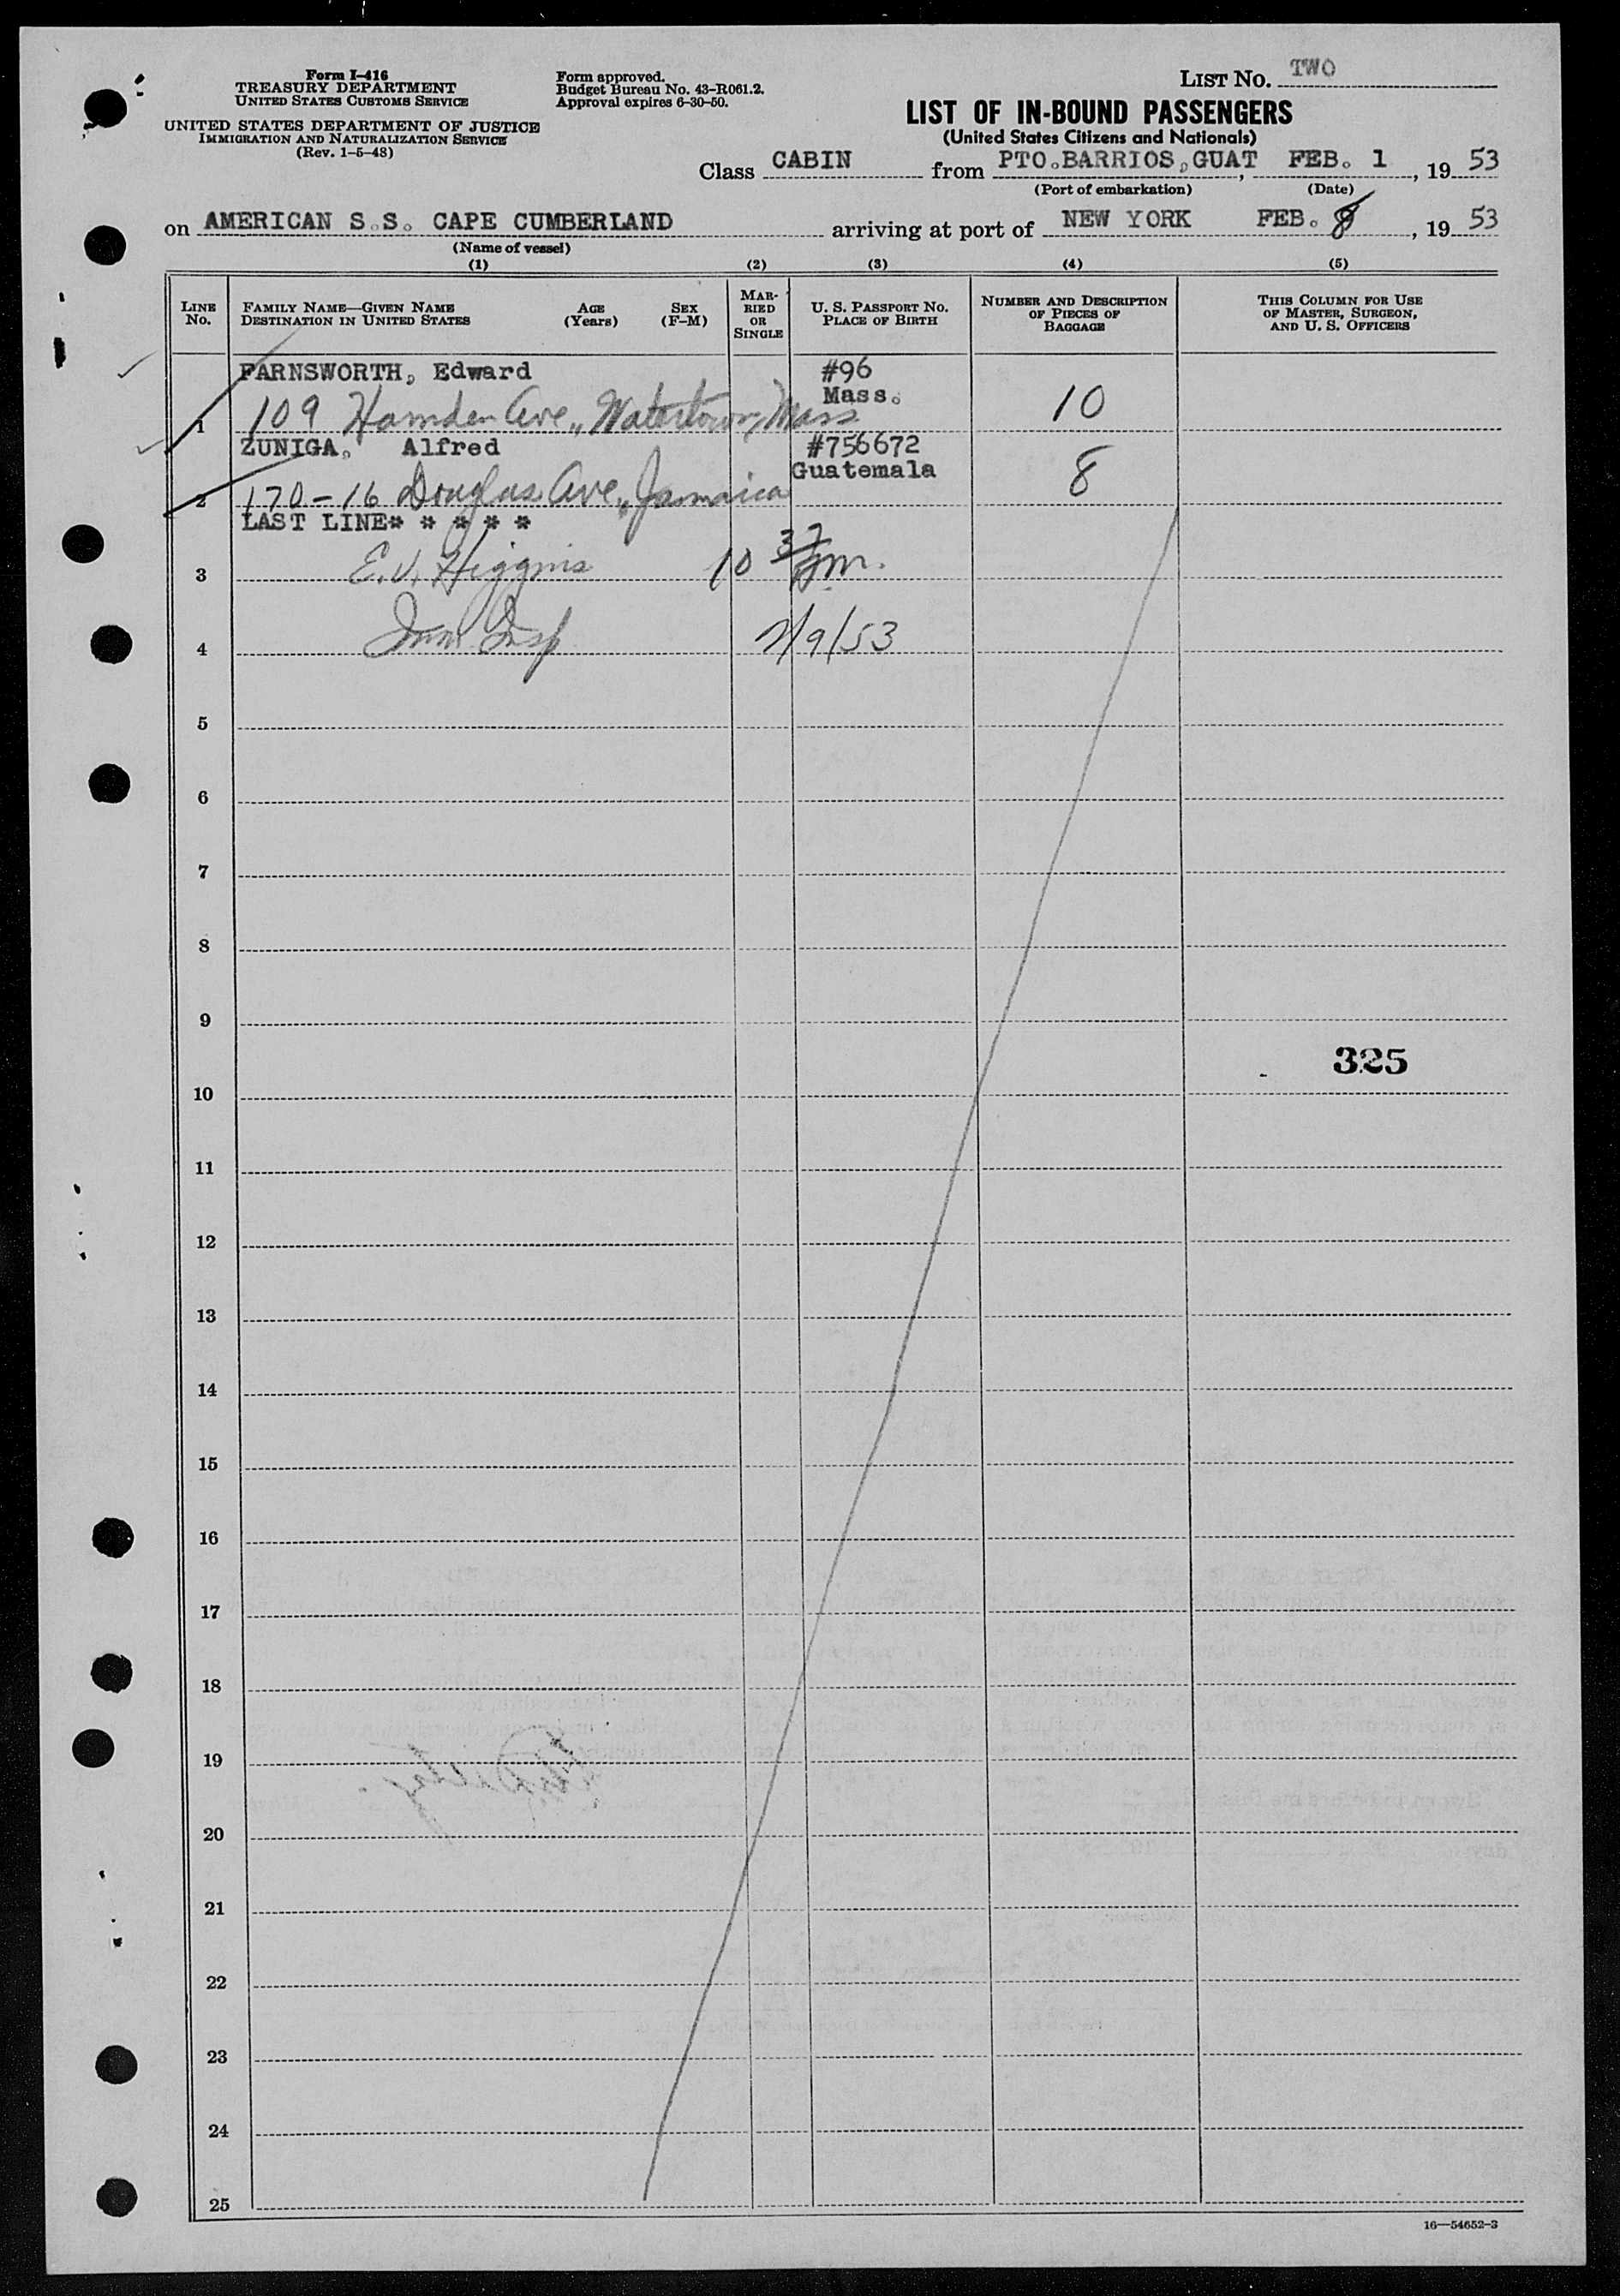 Form I-416
TREASURY DEPARTMENT
UNITED STATES CUSTOMS SERVICE
UNITED STATES DEPARTMENT OF JUSTICE
IMMIGRATION AND NATURALIZATION SERVICE
(Rev. 1-5-48)
Form approved.
Budget Bureau No. 43-R061.2.
Approval expires 6-30-50.
LIST NO. TWO
LIST OF IN-BOUND PASSENGERS
(United States Citizens and Nationals)
Class CABIN from PTO.BARRIOS,GUAT, FEB. 1, 19 53
(Port of embarkation) (Date)
on AMERICAN S.S. CAPE CUMBERLAND arriving at port of NEW YORK FEB. 8, 19 53
(Name of vessel)
(1) (2) (3) (4) (5)
LINE No.
FAMILY NAME—GIVEN NAME
DESTINATION IN UNITED STATES
AGE (Years)
SEX (F-M)
MARRIED OR SINGLE
U. S. PASSPORT NO.
PLACE OF BIRTH
NUMBER AND DESCRIPTION OF PIECES OF BAGGAGE
THIS COLUMN FOR USE OF MASTER, SURGEON, AND U. S. OFFICERS
FARNSWORTH, Edward #96
Mass.
1 109 Hamden Ave., Watertown, Mass 10
ZUNIGA, Alfred #756672
Guatemala
2 170-16 Douglas Ave., Jamaica 8
LAST LINE* * * * *
3 E.V. Higgins 10 37
4 Imm. Insp 2/9/53
5
6
7
8
9
325
10
11
12
13
14
15
16
17
18
19
20
21
22
23
24
25
16—54652-3